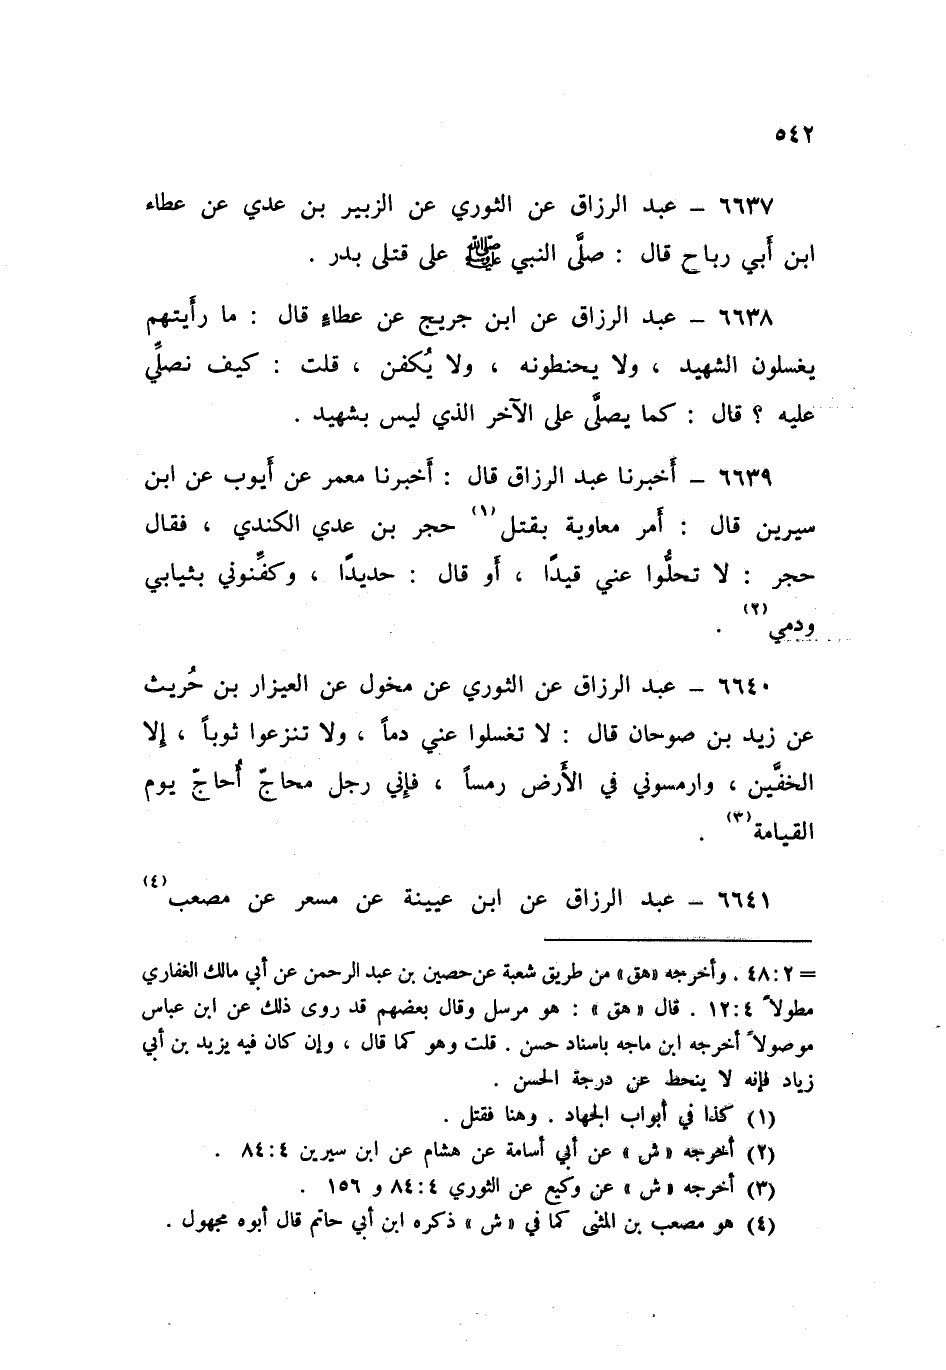 ٥٤٢
٦٦٣٧ – عبد الرزاق عن الثوري عن الزبير بن عدي عن عطاء
ابن أَبي رباح قال : صلَّى النبي ﷺ على قتلى بدر .
٦٦٣٨ – عبد الرزاق عن ابن جريج عن عطاءٍ قال : ما رأَيتهم
يغسلون الشهيد ، ولا يحنطونه ، ولا يُكفن ، قلت : كيف نصلِّي
عليه ؟ قال : كما يصلَّى على الآخر الذي ليس بشهيد .
٦٦٣٩ – أَخبرنا عبد الرزاق قال : أَخبرنا معمر عن أَيوب عن ابن
سيرين قال : أَمر معاوية بقتل(١) حجر بن عدي الكندي ، فقال
حجر : لا تحلُّوا عني قيدًا ، أَو قال : حديدًا ، وكفِّنوني بثيابي
ودمي(٢) .
٦٦٤٠ – عبد الرزاق عن الثوري عن مخول عن العيزار بن حُريث
عن زيد بن صوحان قال : لا تغسلوا عني دماً ، ولا تنزعوا ثوباً ، إلا
الخفَّين ، وارمسوني في الأَرض رمساً ، فإني رجل محاجّ أُحاجّ يوم
القيامة(٣) .
٦٦٤١ – عبد الرزاق عن ابن عيينة عن مسعر عن مصعب(٤)
= ٤٨:٢ . وأخرجه «هق» من طريق شعبة عن حصين بن عبد الرحمن عن أبي مالك الغفاري
مطولاً ١٢:٤ . قال « هق » : هو مرسل وقال بعضهم قد روى ذلك عن ابن عباس
موصولاً أخرجه ابن ماجه باسناد حسن . قلت وهو كما قال ، وإن كان فيه يزيد بن أبي
زياد فإنه لا ينحط عن درجة الحسن .
(١) كذا في أبواب الجهاد . وهنا فقتل .
(٢) أخرجه «ش » عن أبي أسامة عن هشام عن ابن سيرين ٨٤:٤ .
(٣) أخرجه «ش » عن وكيع عن الثوري ٨٤:٤ و ١٥٦ .
(٤) هو مصعب بن المثنى كما في «ش » ذكره ابن أبي حاتم قال أبوه مجهول .